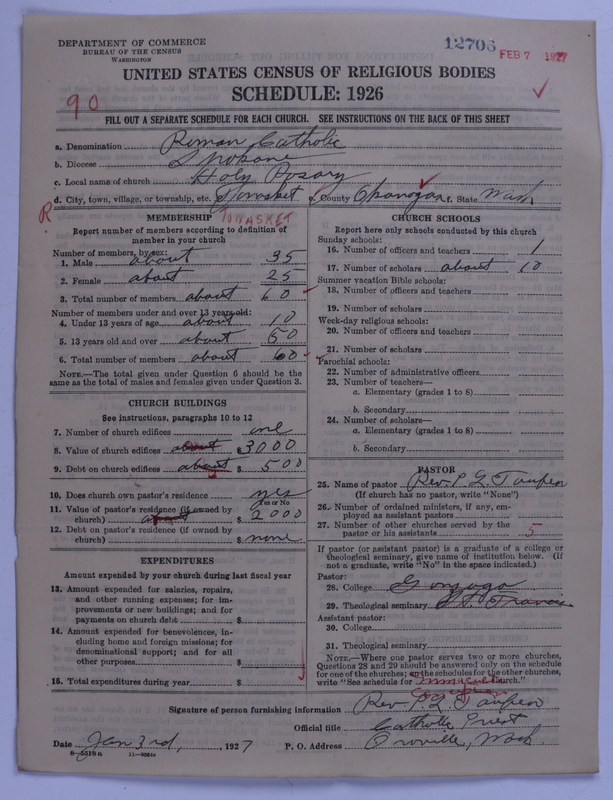 DEPARTMENT OF COMMERCE
BUREAU OF THE CENSUS
WASHINGTON
12706
FEB 7 1927
UNITED STATES CENSUS OF RELIGIOUS BODIES
SCHEDULE: 1926
90
FILL OUT A SEPARATE SCHEDULE FOR EACH CHURCH. SEE INSTRUCTIONS ON THE BACK OF THIS SHEET
a. Denomination Roman Catholic
b. Diocese Spokane
c. Local name of church Holy Rosary
d. City, town, village, or township, etc. Tonasket e. County Okanogan f. State Wash
R TONASKET
MEMBERSHIP
Report number of members according to definition of
member in your church
Number of members, by sex:
1. Male about 35
2. Female about 25
3. Total number of members about 60
Number of members under and over 13 years old:
4. Under 13 years of age about 10
5. 13 years old and over about 50
6. Total number of members about 60
NOTE.—The total given under Question 6 should be
same as the total of males and females given under Question 3.
CHURCH BUILDINGS
See instructions, paragraphs 10 to 12
7. Number of church edifices one
8. Value of church edifices about $ 3000
9. Debt on church edifices about $ 500
10. Does church own pastor's residence yes
Yes or No
11. Value of pastor's residence (if owned by
church) about $ 2000
12. Debt on pastor's residence (if owned by
church) $ none
EXPENDITURES
Amount expended by your church during last fiscal year
13. Amount expended for salaries, repairs,
and other running expenses; for im-
provements or new buildings; and for
payments on church debt $
14. Amount expended for benevolences, in-
cluding home and foreign missions; for
denominational support; and for all
other purposes $
15. Total expenditures during year $
CHURCH SCHOOLS
Report here only schools conducted by this church
Sunday schools:
16. Number of officers and teachers 1
17. Number of scholars about 10
Summer vacation Bible schools:
18. Number of officers and teachers
19. Number of scholars
Week-day religious schools:
20. Number of officers and teachers
21. Number of scholars
Parochial schools:
22. Number of administrative officers
23. Number of teachers—
a. Elementary (grades 1 to 8)
b. Secondary
24. Number of scholars—
a. Elementary (grades 1 to 8)
b. Secondary
PASTOR
25. Name of pastor Rev. P. L.
(If church has no pastor, write "None")
26. Number of ordained ministers, if any, em-
ployed as assistant pastors
27. Number of other churches served by the
pastor or his assistants 5
If pastor (or assistant pastor) is a graduate of a college or
theological seminary, give name of institution below. (If
not a graduate, write "No" in the space indicated.)
Pastor:
28. College Gonzaga
29. Theological seminary St. Francis
Assistant pastor:
30. College
31. Theological seminary
NOTE.—Where one pastor serves two or more churches,
Questions 28 and 29 should be answered only on the schedule
for one of the churches; on the schedules for the other churches,
write "See schedule for Immaculate Church."
Conception
Signature of person furnishing information Rev. P. L.
Official title Catholic Priest
Date Jan 3rd, 1927 P. O. Address Oroville, Wash.